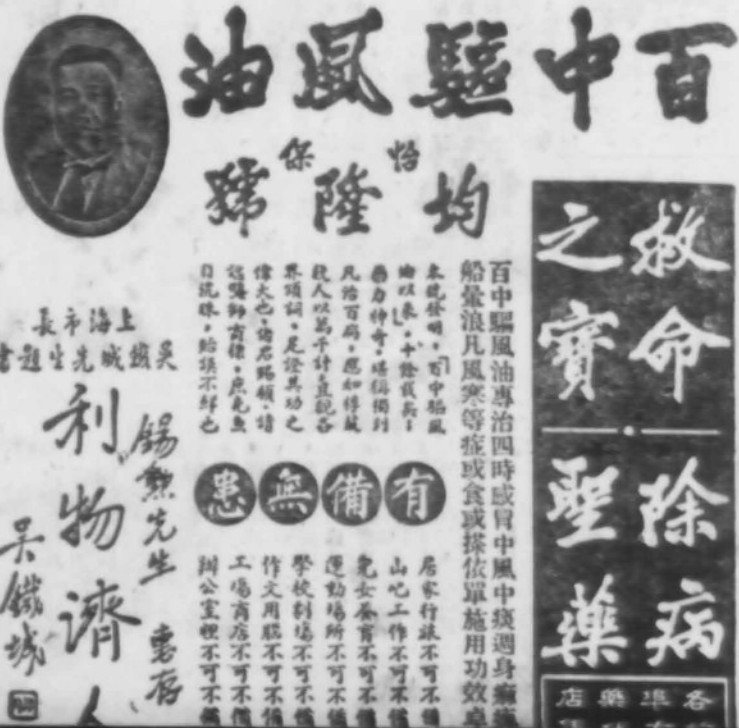 百中驅風油
怡保
均隆號
救命
之寶
除病
聖藥
各埠藥店
百中驅風油專治四時感冒中風中痰週身
船暈浪凡風寒等症或食或搽依單施用功效卓
本號發明。百中驅風
油以來。十餘載矣。
藥力神奇。堪稱獨到
凡治百病。應如桴鼓
救人以萬千計。直觀各
界頌詞。足證其功之
偉大也。諸君賜顧。請
認醫師商標。庶免魚
目混珠。貽誤不鮮也
有備無患
居家行旅不可不備
山巴工作不可不備
兒女養育不可不備
運動場所不可不備
學校劇場不可不備
作文用腦不可不備
工場商店不可不備
辦公室裡不可不備
上海市長
吳鐵城先生題書
錫勲先生 惠存
利物濟人
吳鐵城